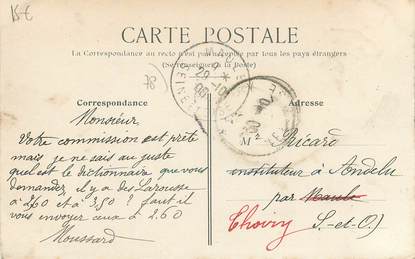 15 €
CARTE POSTALE
La Correspondance au recto n'est pas acceptée par tous les pays étrangers
(Se renseigner à la Poste)
Correspondance
Monsieur,
Votre commission est prête
mais je ne sais au juste
quel est le dictionnaire que vous
demandez, il y a des Larousse
à 2,60 et à 3,50? faut il
vous envoyer ceux à 2.60
Moussard
29
Adresse
Ricard
instituteur à Andelu
par Maule
Thoiry S.-et-O.)